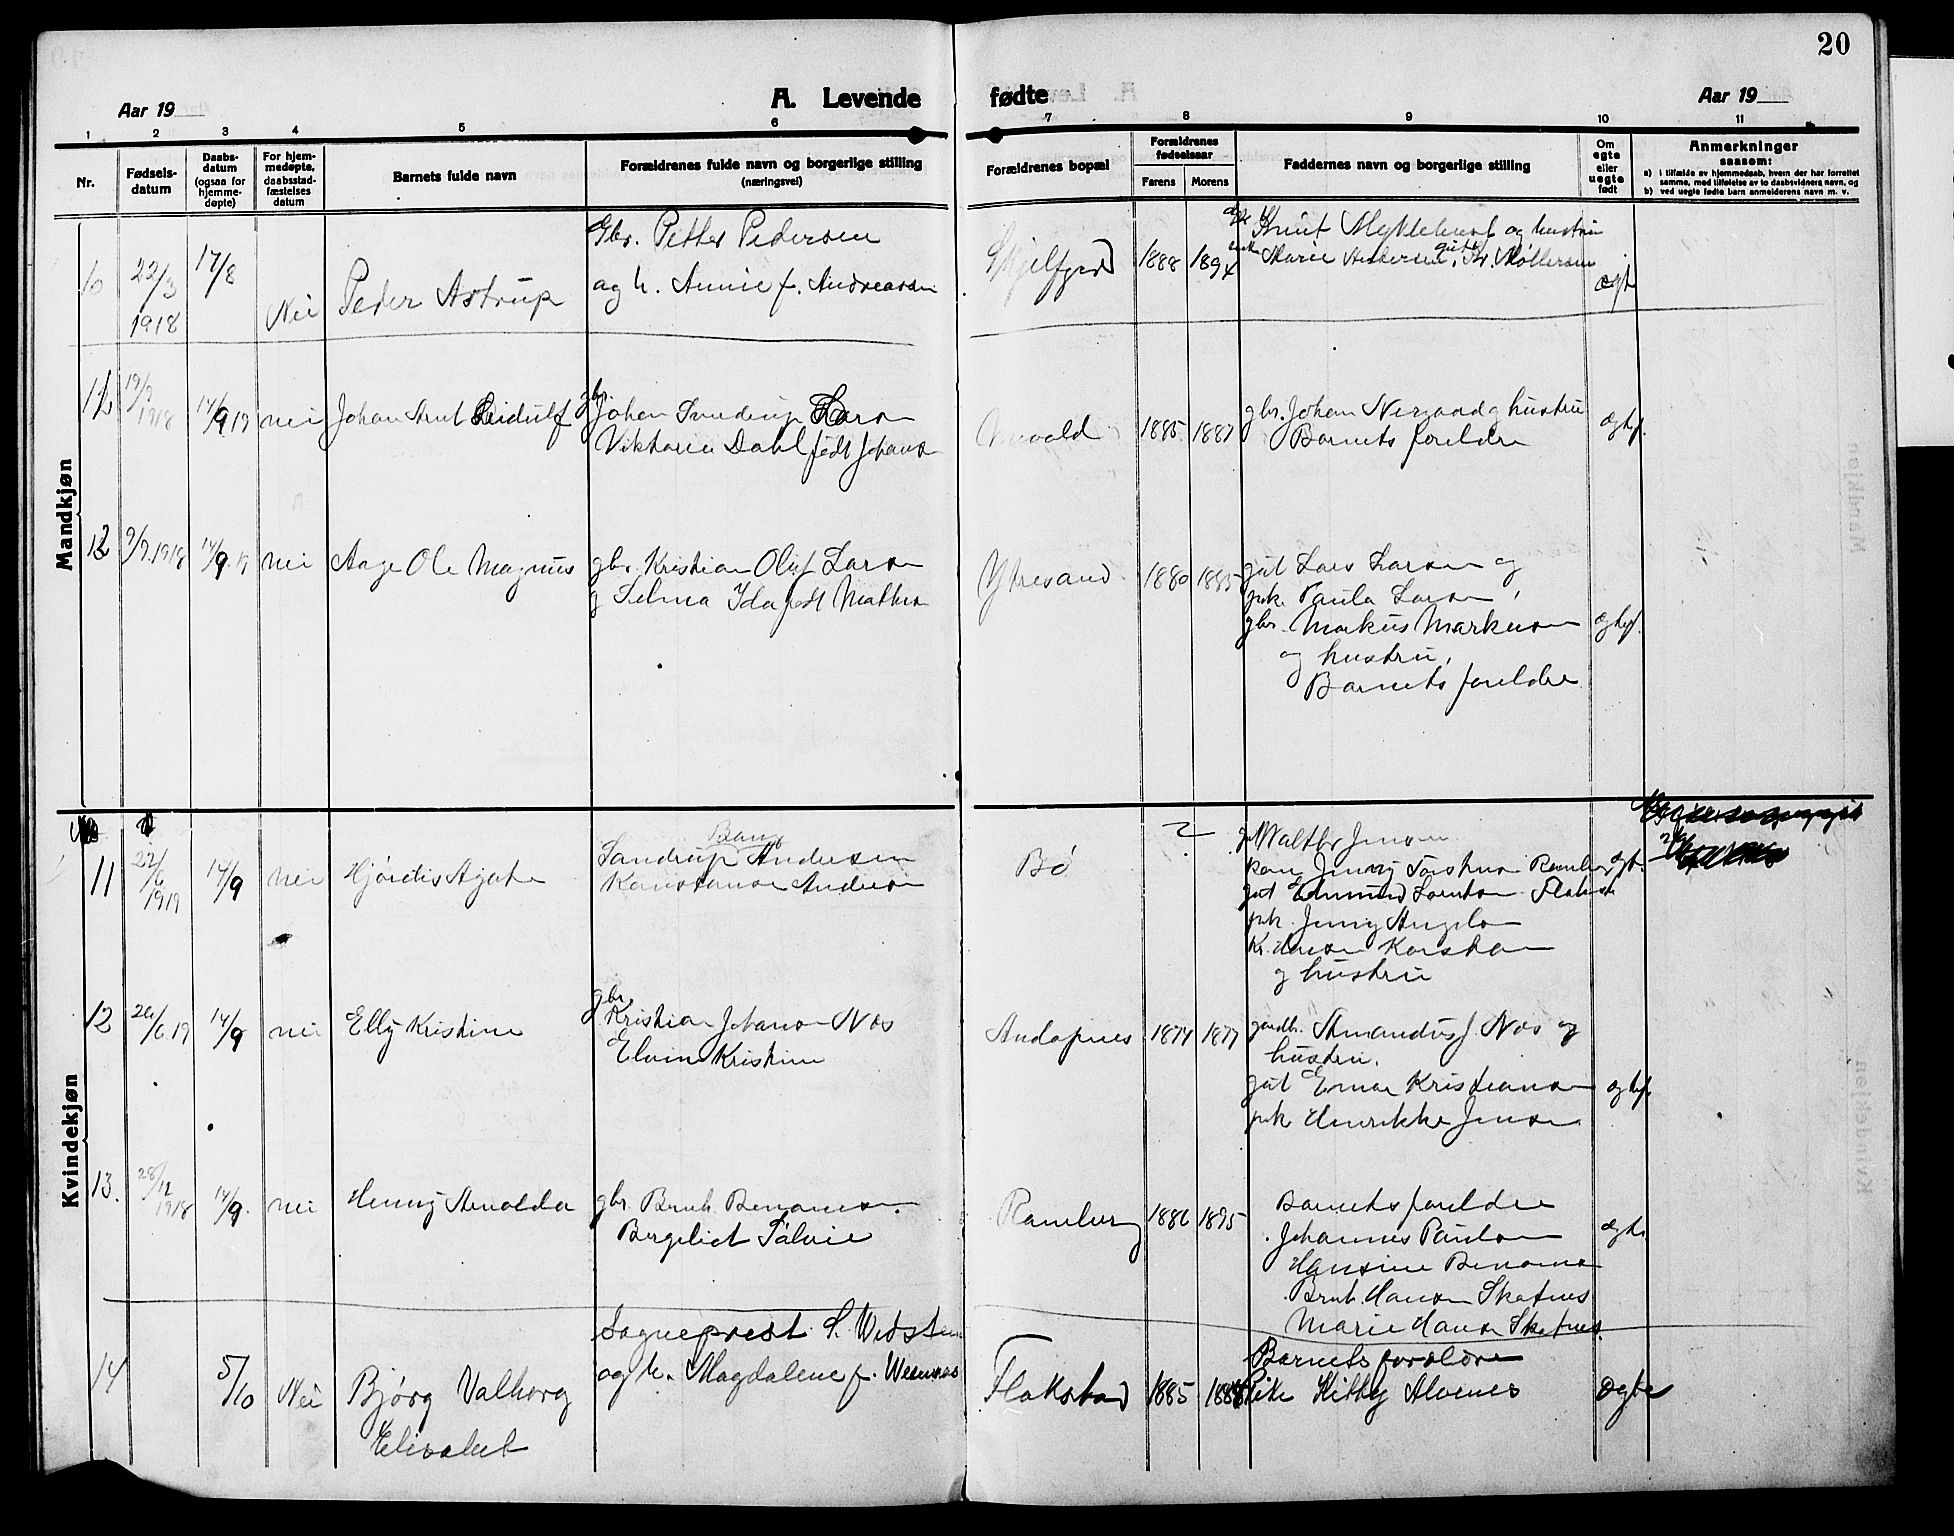 20
Aar 19
A. Levende
fødte
Aar 19
1 2 3 4 5 6 7 8 9 10 11
Nr.
Fødsels-
datum
Daabs-
datum
(ogsaa for
hjemme-
døpte)
For hjem-
medøpte,
daabsstad-
fæstelses
datum
Barnets fulde navn
Forældrenes fulde navn og borgerlige stilling
(næringsvei)
Forældrenes bopæl
Forældrenes
fødselsaar
Farens
Morens
Faddernes navn og borgerlige stilling
Om
egte
eller
uegte
født
Anmerkninger
saasom:
a) i tilfælde av hjemmedaab, hvem der har forrettet
samme, med tilføielse av to daabsvidners navn, og
b) ved uegte fødte barn anmelderens navn m. v.
Mandkjøn
10
22/3
1918
17/8
Nei
Peder Astrup
Gbr. Petter Pedersen
og h. Annie f. Andreassen
Skjelfjord
1888
1894
Knut Myklebust og hustru
Marie Andersen, gut Kr. Møllersen
ægte
19/9
1918
14/9 19
nei
Johan Arnt Leidulf
gbr
Johan Larsen
Viktoria Dahl født Johans
1885
1887
gbr. Johan Nergaard og hustru
Barnets foreldre
12
9/9.1918
14/9 19
nei
Aage Ole Magnus
gbr. Kristian Oluf Larsen
og Selma Ida født Mathisen
Ytresand
1880
1885
gut Lars Larsen og
pik. Paula Larsen,
gbr. Markus Markusen
og hustru,
Barnets foreldre
Kvindekjøn
11
22/6
1919
14/9
nei
Hjørdis Agate
Sandrup Andersen
Konstanse Andersen
Bø
?
gut Walther Jensen
Jenny Torstensen Ramberg
gut Edmund Lorentsen Flakstad
pik. Jenny
Kr. Hansen
og hustru
12
26/6.19
14/9
nei
Elly Kristine
gbr.
Kristian Johansen Næs
Elvine Kristine
Andopnes
1874
1877
gardbr. Amandus J. Næs og
hustru.
gut Einar Kristiansen
pik Henrikke Jensen
13.
28/12
1918
14/9.
nei
Henny Arnolda
gbr. Bernh. Benonisen.
Bergeliot Fålvie
Ramberg
1886
1895
Barnets foreldre
Johannes Paulsen
Hansine Benonisen
Bernh. Hansen Skatnes
Marie Hansen Skatnes.
ægte
14
5/10
Nei
Bjørg Valborg
Elisabet
Sogneprest S. Vidsteen
og h. Magdalene f.
Flakstad
1885
1888
Barnets forældre
Pike Kitty Alvenes
ægte